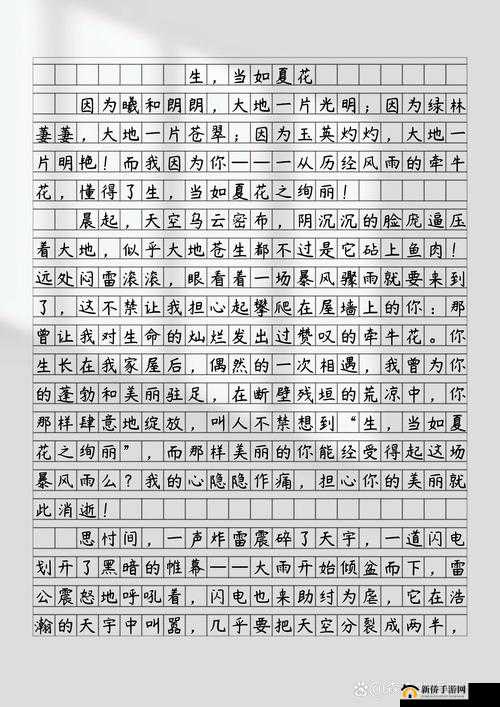 生，当如夏花
因为曦和朗朗，大地一片光明；因为绿林
萋萋，大地一片苍翠；因为玉英灼灼，大地一
片明艳！而我因为你———从历经风雨的牵牛
花，懂得了生，当如夏花之绚丽！
晨起，天空乌云密布，阴沉沉的脸庞逼压
着大地，似乎大地苍生都不过是它砧上鱼肉！
远处闷雷滚滚，眼看着一场暴风骤雨就要来到
了，这不禁让我担心起攀爬在屋墙上的你：那
曾让我对生命的灿烂发出过赞叹的牵牛花。你
生长在我家屋后，偶然的一次相遇，我曾为你
的蓬勃和美丽驻足，在断壁残垣的荒凉中，你
那样肆意地绽放，叫人不禁想到“生，当如夏
花之绚丽”，而那样美丽的你能经受得起这场
暴风雨么？我的心隐隐作痛，担心你的美丽就
此消逝！
思忖间，一声炸雷震碎了天宇，一道闪电
划开了黑暗的帷幕——大雨开始倾盆而下，雷
公震怒地呼吼着，闪电也来助纣为虐，它在浩
瀚的天宇中叫嚣，几乎要把天空分裂成两半，
新侨手游网